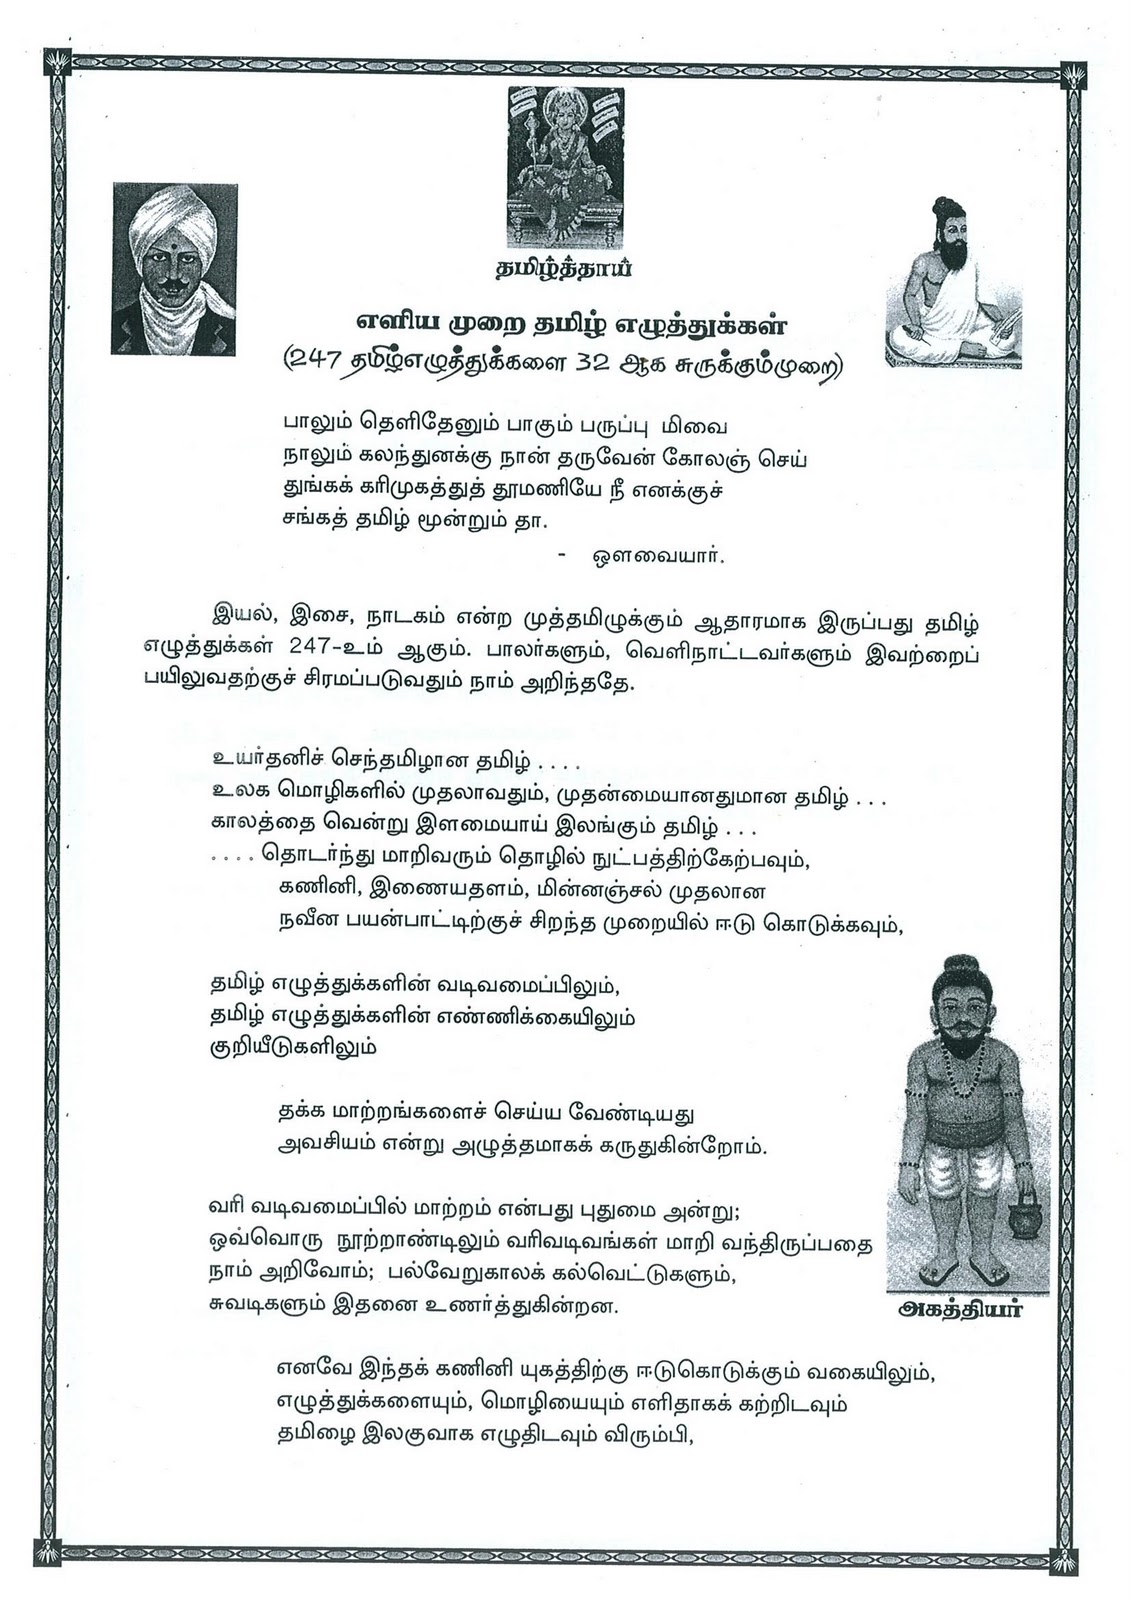 தமிழ்த்தாய்
எளிய முறை தமிழ் எழுத்துக்கள்
(247 தமிழ்எழுத்துக்களை 32 ஆக சுருக்கும்முறை)
பாலும் தெளிதேனும் பாகும் பருப்பு மிவை
நாலும் கலந்துனக்கு நான் தருவேன் கோலஞ் செய்
துங்கக் கரிமுகத்துத் தூமணியே நீ எனக்குச்
சங்கத் தமிழ் மூன்றும் தா.
- ஔவையார்.
இயல், இசை, நாடகம் என்ற முத்தமிழுக்கும் ஆதாரமாக இருப்பது தமிழ்
எழுத்துக்கள் 247-உம் ஆகும். பாலர்களும், வெளிநாட்டவர்களும் இவற்றைப்
பயிலுவதற்குச் சிரமப்படுவதும் நாம் அறிந்ததே.
உயர்தனிச் செந்தமிழான தமிழ் . . . .
உலக மொழிகளில் முதலாவதும், முதன்மையானதுமான தமிழ் . . .
காலத்தை வென்று இளமையாய் இலங்கும் தமிழ் . . .
. . . . தொடர்ந்து மாறிவரும் தொழில் நுட்பத்திற்கேற்பவும்,
கணினி, இணையதளம், மின்னஞ்சல் முதலான
நவீன பயன்பாட்டிற்குச் சிறந்த முறையில் ஈடு கொடுக்கவும்,
தமிழ் எழுத்துக்களின் வடிவமைப்பிலும்,
தமிழ் எழுத்துக்களின் எண்ணிக்கையிலும்
குறியீடுகளிலும்
தக்க மாற்றங்களைச் செய்ய வேண்டியது
அவசியம் என்று அழுத்தமாகக் கருதுகின்றோம்.
வரி வடிவமைப்பில் மாற்றம் என்பது புதுமை அன்று;
ஒவ்வொரு நூற்றாண்டிலும் வரிவடிவங்கள் மாறி வந்திருப்பதை
நாம் அறிவோம்; பல்வேறுகாலக் கல்வெட்டுகளும்,
சுவடிகளும் இதனை உணர்த்துகின்றன.
அகத்தியர்
எனவே இந்தக் கணினி யுகத்திற்கு ஈடுகொடுக்கும் வகையிலும்,
எழுத்துக்களையும், மொழியையும் எளிதாகக் கற்றிடவும்
தமிழை இலகுவாக எழுதிடவும் விரும்பி,